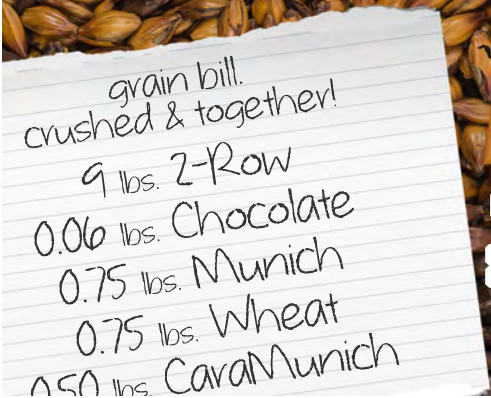 grain bill.
crushed & together!
9 lbs. 2-Row
0.06 lbs. Chocolate
0.75 lbs. Munich
0.75 lbs. Wheat
0.50 lbs. CaraMunich